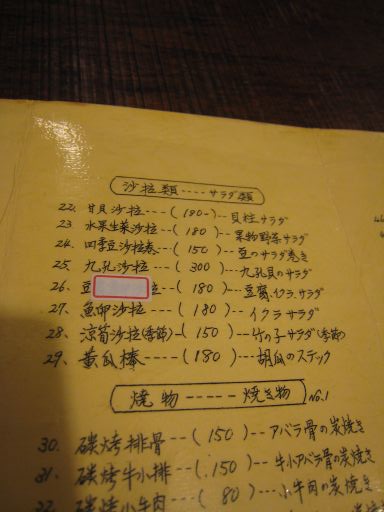 沙拉類----サラダ類
22. 甘貝沙拉---(180-)--貝柱サラダ
23. 水果生菜沙拉--(180)--果物野菜サラダ
24. 四季豆沙拉卷--(150)--豆のサラダ巻き
25. 九孔沙拉----(300)---九孔貝のサラダ
26. 豆 拉--(180)---豆腐、イクラ、サラダ
27. 魚卵沙拉----(180)---イクラサラダ
28. 涼筍沙拉(季節)-(150)--竹の子サラダ(季節)
29. 黃瓜棒----(180)---胡瓜のステック
燒物-----焼き物 No.1
30. 碳烤排骨--(150)--アバラ骨の炭焼き
31. 碳烤牛小排--(150)--牛小アバラ骨の炭焼き
32. 碳烤小牛肉--(80)--小牛肉の炭焼